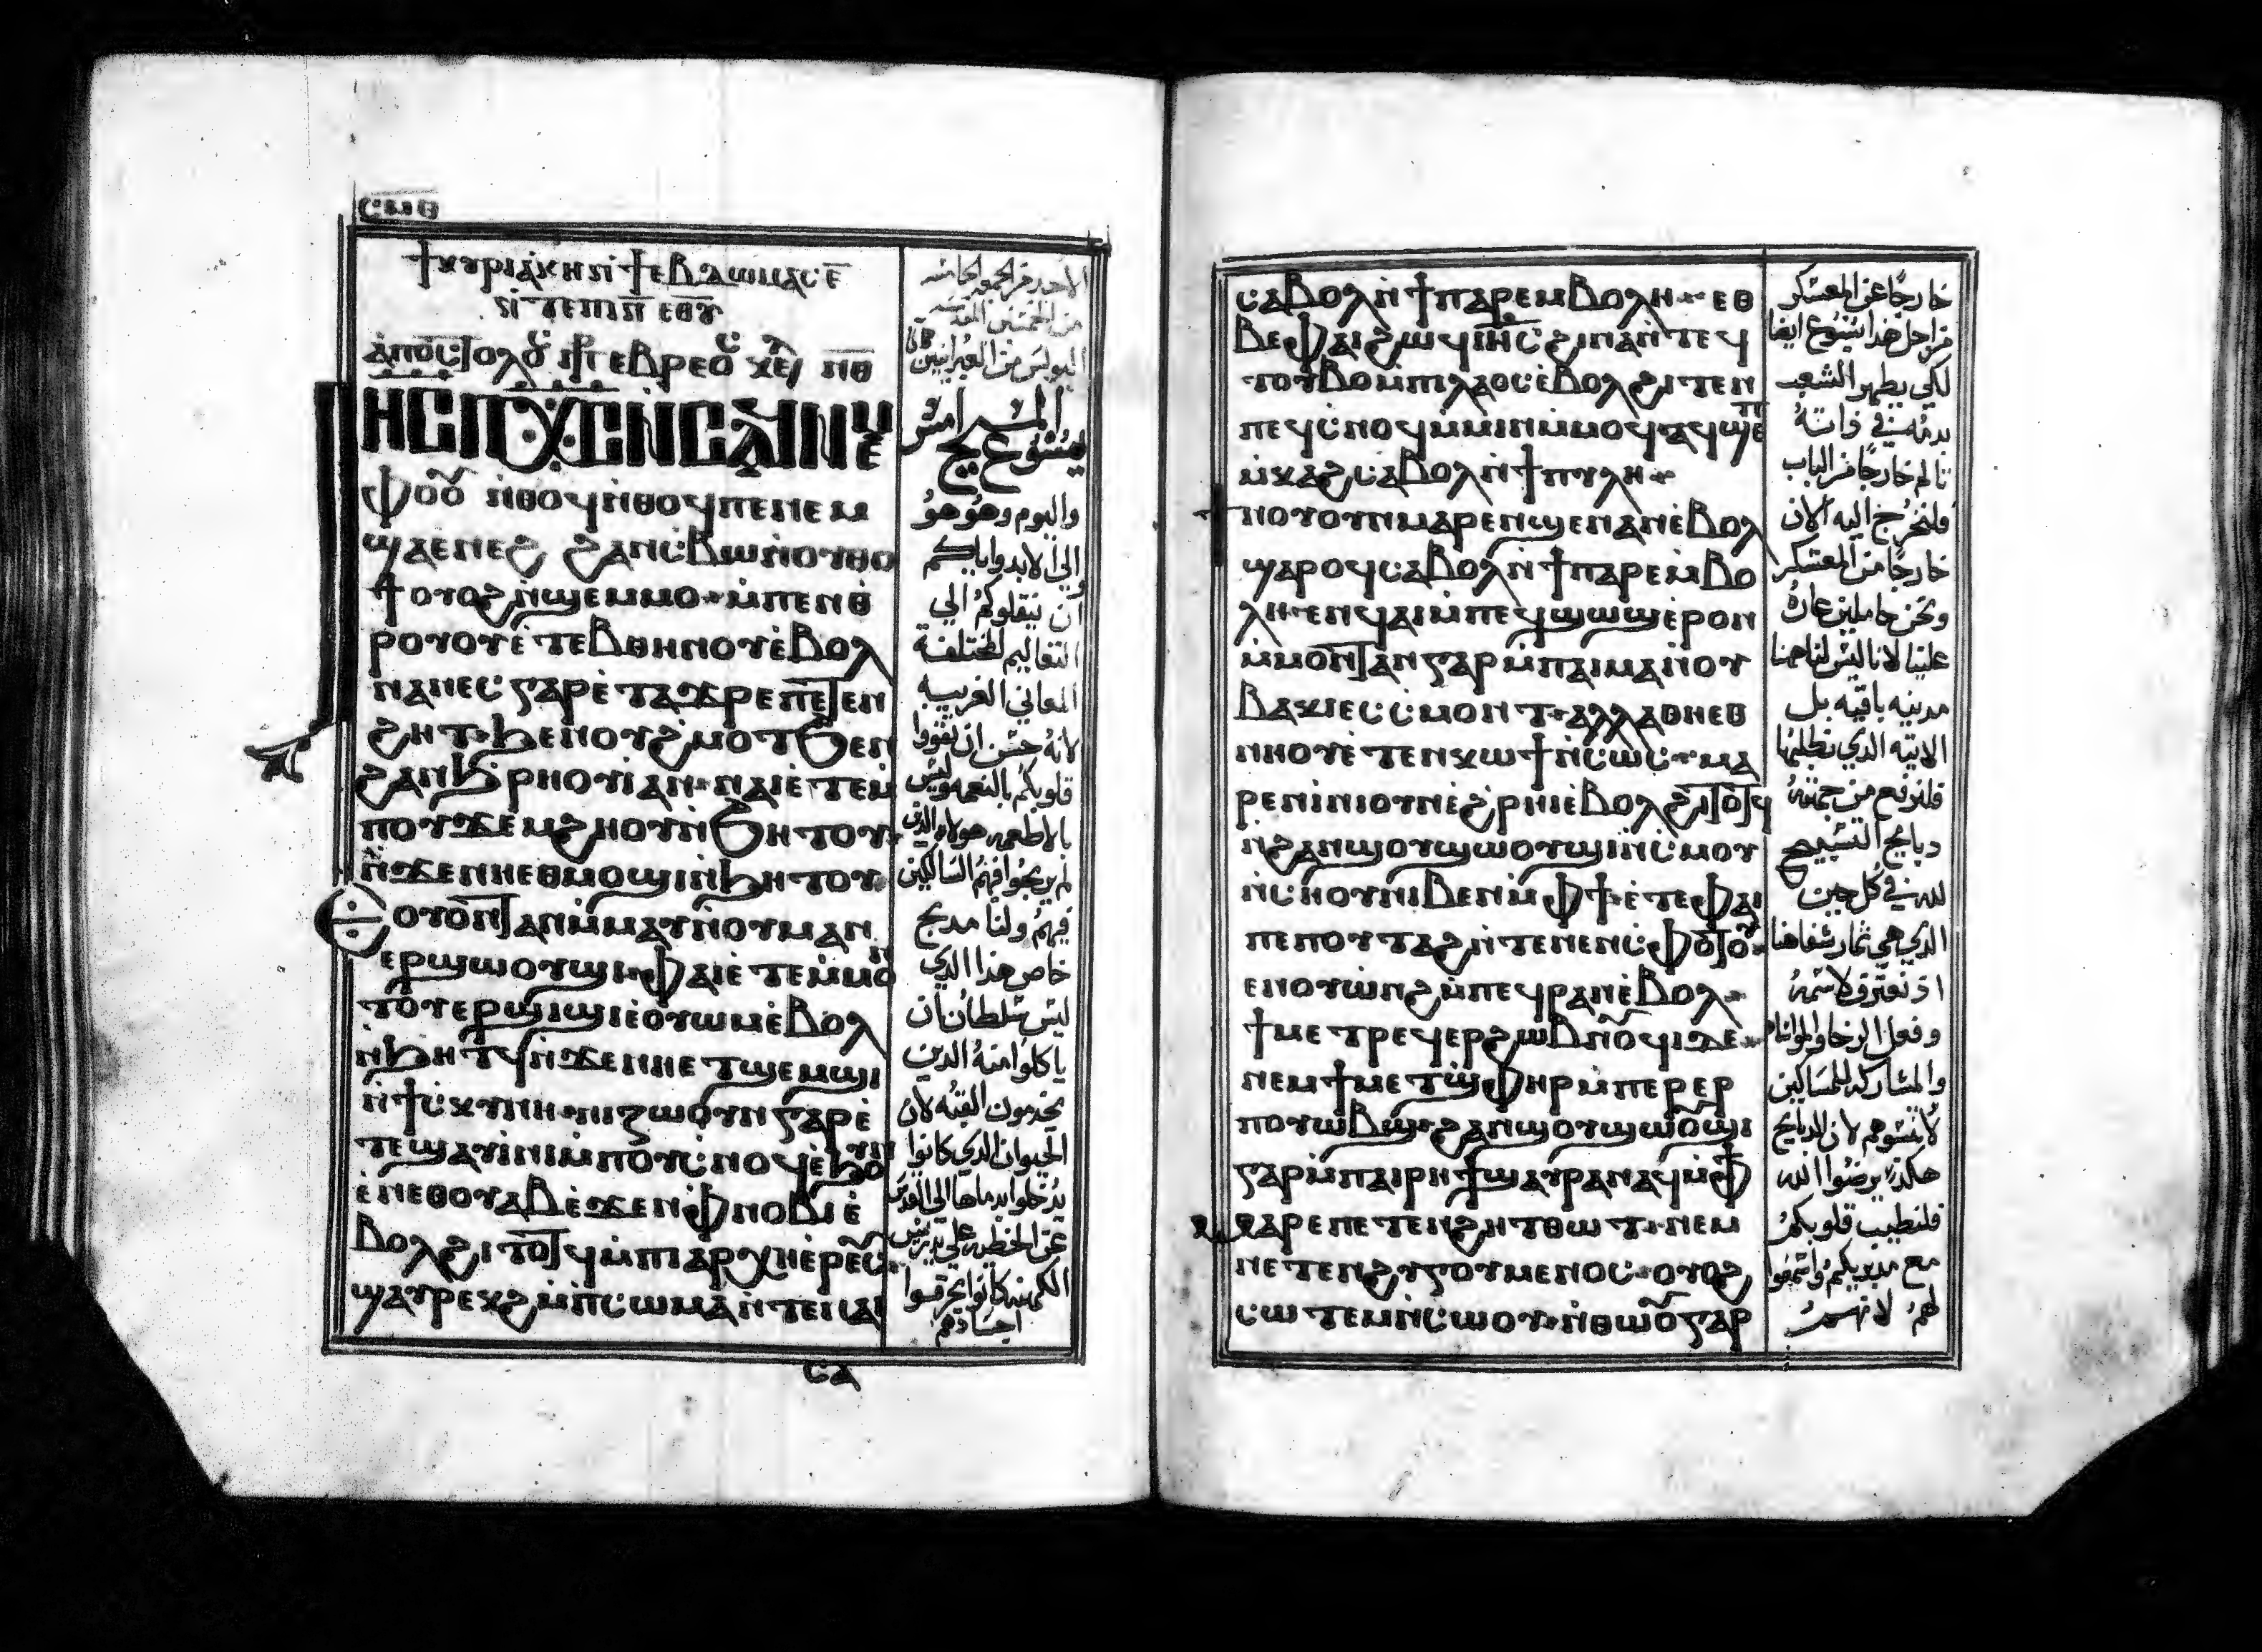 ⲥⲙⲑ
ϯⲕⲩⲣⲓⲁⲕⲏ ⲛ̀ϯⲉⲃⲇⲱⲙⲁⲥ ⲉ̅
ⲁⲡⲟⲥⲧⲟⲗⲟⲩ
ⲓⲏⲥ ⲡⲭⲥ ⲛ̀ⲥⲁϥ ⲛⲉⲙ
ⲫⲟⲟⲩ ⲛ̀ⲑⲟϥ ⲛ̀ⲑⲟϥ ⲡⲉ ⲛⲉⲙ
ϣⲁⲉⲛⲉϩ ϩⲁⲛⲥⲃⲱ ⲛ̀ⲟⲩⲑⲟ
ϯ ⲟⲩⲟϩ ⲛ̀ϣⲉⲙⲙⲟ ⲙ̀ⲡⲉⲛⲑ
ⲣⲟⲩⲟⲩⲉ̀ⲧⲉⲃ ⲑⲏⲛⲟⲩ ⲉ̀ⲃⲟⲗ
ⲛⲁⲛⲉⲥ ⲅⲁⲣ ⲉ̀ⲧⲁϫⲣⲉ ⲡⲉⲧⲉⲛ
ϩⲏⲧ ϧⲉⲛ ⲟⲩϩ̀ⲙⲟⲧ ϧⲉⲛ
ϩⲁⲛϧ̀ⲣⲏⲟⲩⲓ̀ ⲁⲛ ⲛⲁⲓ ⲉ̀ⲧⲉⲙ̀
ⲡⲟⲩϫⲉⲙϩⲏⲟⲩ ⲛ̀ϧⲏⲧⲟⲩ
ⲛ̀ϫⲉ ⲛⲏⲉⲑⲙⲟϣⲓ ⲛ̀ϧⲏⲧⲟⲩ
ⲟⲩⲟⲛⲧⲁⲛ ⲙ̀ⲙⲁⲩ ⲛ̀ⲟⲩⲙⲁⲛ
ⲉⲣϣⲱⲟⲩϣⲓ ⲫⲁⲓ ⲉ̀ⲧⲉⲙ̀ⲙⲟⲛ
ⲧⲟⲩⲉⲣϣⲓϣⲓ ⲉ̀ⲟⲩⲱⲙ ⲉ̀ⲃⲟⲗ
ⲛ̀ϧⲏⲧϥ ⲛ̀ϫⲉ ⲛⲏⲉⲧϣⲉⲙϣⲓ
ⲛ̀ϯⲥⲕⲩⲛⲏ ⲛⲓⲍⲱⲟⲩⲛ ⲅⲁⲣ ⲉ̀
ⲧⲉϣⲁⲩⲓ̀ⲛⲓ ⲙ̀ⲡⲟⲩⲥⲛⲟϥ ⲉ̀ϧⲟⲩⲛ
ⲉ̀ⲛⲉⲑⲟⲩⲁⲃ ⲉ̀ϫⲉⲛ ⲫⲛⲟⲃⲓ ⲉ̀
ⲃⲟⲗϩⲓⲧⲟⲧϥ ⲙ̀ⲡⲓⲁⲣⲭⲏⲉ̀ⲣⲉⲩⲥ
ϣⲁⲩⲣⲉⲕϩ ⲙ̀ⲡⲥⲱⲙⲁ ⲛ̀ⲧⲉ ⲛⲁⲓ
ⲥⲁ
المسيح امس
يسوع
واليوم وهو هو
الي الابد واياكم
ان ينقلوكم الي
التعاليم المختلفة
المعاني الغريبه
لانه حسن ان تقووا
قلوبكم بالنعمه وليس
بالاطعمه هولاء الذين
لم يربحوا فيهم السالكين
فيهم ولنا مذبح
خاص هذا الذي
ليس سلطان ان
ياكلوا منه الذين
يخدمون القبه لان
الحيوان الذي كانوا
يدخلوا بدماها الي القدس
عن الخطيه علي يد رييس
الكهنه كانوا يحرقوا
اجسادهم
ⲥⲁⲃⲟⲗ ⲛ̀ϯⲡⲁⲣⲉⲙⲃⲟⲗⲏ ⲉⲑ
ⲃⲉⲫⲁⲓ ϩⲱϥ ⲓⲏⲥ ϩⲓⲛⲁ ⲛ̀ⲧⲉϥ
ⲧⲟⲩⲃⲟ ⲙ̀ⲡⲓⲗⲁⲟⲥ ⲉ̀ⲃⲟⲗϩⲓⲧⲉⲛ
ⲡⲉϥⲥⲛⲟϥ ⲙ̀ⲙⲓⲛ ⲙ̀ⲙⲟϥ ⲁϥϣⲉⲡ
ⲙ̀ⲕⲁϩ ⲥⲁⲃⲟⲗ ⲛ̀ϯⲡⲩⲗⲏ
ⲛⲟⲩⲟⲩⲛ ⲙⲁⲣⲉⲛϣⲉⲛⲁⲛ ⲉ̀ⲃⲟⲗ
ϣⲁⲣⲟϥ ⲥⲁⲃⲟⲗ ⲛ̀ϯⲡⲁⲣⲉⲙⲃⲟ
ⲗⲏ ⲉⲛϥⲁⲓ ⲙ̀ⲡⲉϥϣⲱϣ ⲉ̀ⲣⲟⲛ
ⲙ̀ⲙⲟⲛⲧⲁⲛ ⲅⲁⲣ ⲙ̀ⲡⲁⲓⲙⲁ ⲛ̀ⲟⲩ
ⲃⲁⲕⲓ ⲉⲥⲥⲙⲟⲛⲧ ⲁⲗⲗⲁ ⲑⲏⲉⲑ
ⲛⲏⲟⲩ ⲉ̀ⲧⲉⲛⲕⲱϯ ⲛ̀ⲥⲱⲥ ⲙⲁ
ⲣⲉⲛⲓⲛⲓ ⲟⲩⲛ ⲉ̀ϩ̀ⲣⲏⲓ ⲉ̀ⲃⲟⲗϩⲓⲧⲟⲧϥ
ⲛ̀ϩⲁⲛϣⲟⲩϣⲱⲟⲩϣⲓ ⲛ̀ⲥⲙⲟⲩ
ⲛ̀ⲥⲏⲟⲩ ⲛⲓⲃⲉⲛ ⲙ̀ⲫϯ ⲉ̀ⲧⲉ ⲫⲁⲓ
ⲡⲉ ⲡⲟⲩⲧⲁϩ ⲛ̀ⲧⲉ ⲛⲉⲛⲥⲫⲟⲧⲟⲩ
ⲉⲛⲟⲩⲱⲛϩ ⲙ̀ⲡⲉϥⲣⲁⲛ ⲉ̀ⲃⲟⲗ
ϯⲙⲉⲧⲣⲉϥⲉⲣϩⲱⲃ ⲛ̀ⲟⲩϥⲓ ϫⲉ
ⲛⲉⲙ ϯⲙⲉⲧϣⲫⲏⲣ ⲙ̀ⲡⲉⲣⲉⲣ
ⲡⲟⲩⲱⲃϣ ϩⲁⲛϣⲟⲩϣⲱⲟⲩϣⲓ
ⲅⲁⲣ ⲙ̀ⲡⲁⲓⲣⲏϯ ϣⲁⲩⲣⲁⲛⲁϥ ⲙ̀ⲫϯ
ⲙⲁⲣⲉ ⲡⲉⲧⲉⲛϩⲏⲧ ⲑⲱⲧ ⲛⲉⲙ
ⲛⲉⲧⲉⲛϩⲩⲅⲟⲩⲙⲉⲛⲟⲥ ⲟⲩⲟϩ
ⲥⲱⲧⲉⲙ ⲛ̀ⲥⲱⲟⲩ ⲛ̀ⲑⲱⲟⲩ ⲅⲁⲣ
خارجا عن المعسكر
من اجل هذا يسوع ايضا
لكي يطهر الشعب
بدمه في ذاته
تالم خارجا من الباب
فلنخرج اليه الان
خارجا من المعسكر
ونحن حاملين عاره
علينا لانا ليس لنا هنا
مدينه باقيه بل
الاتيه الذي نطلبها
فلنرفع من جهته
دبايح التسبيح
لله في كل حين
الذي هي ثمار شفاهنا
اذ نعترف لاسمه
وفعل الرخا والمواناه
والمشاركه للمساكين
لا تنسوهم لان الدبايح
هكذا يرضوا الله
فلتطيب قلوبكم
مع مدبريكم واسمعوا
لهم لانهم